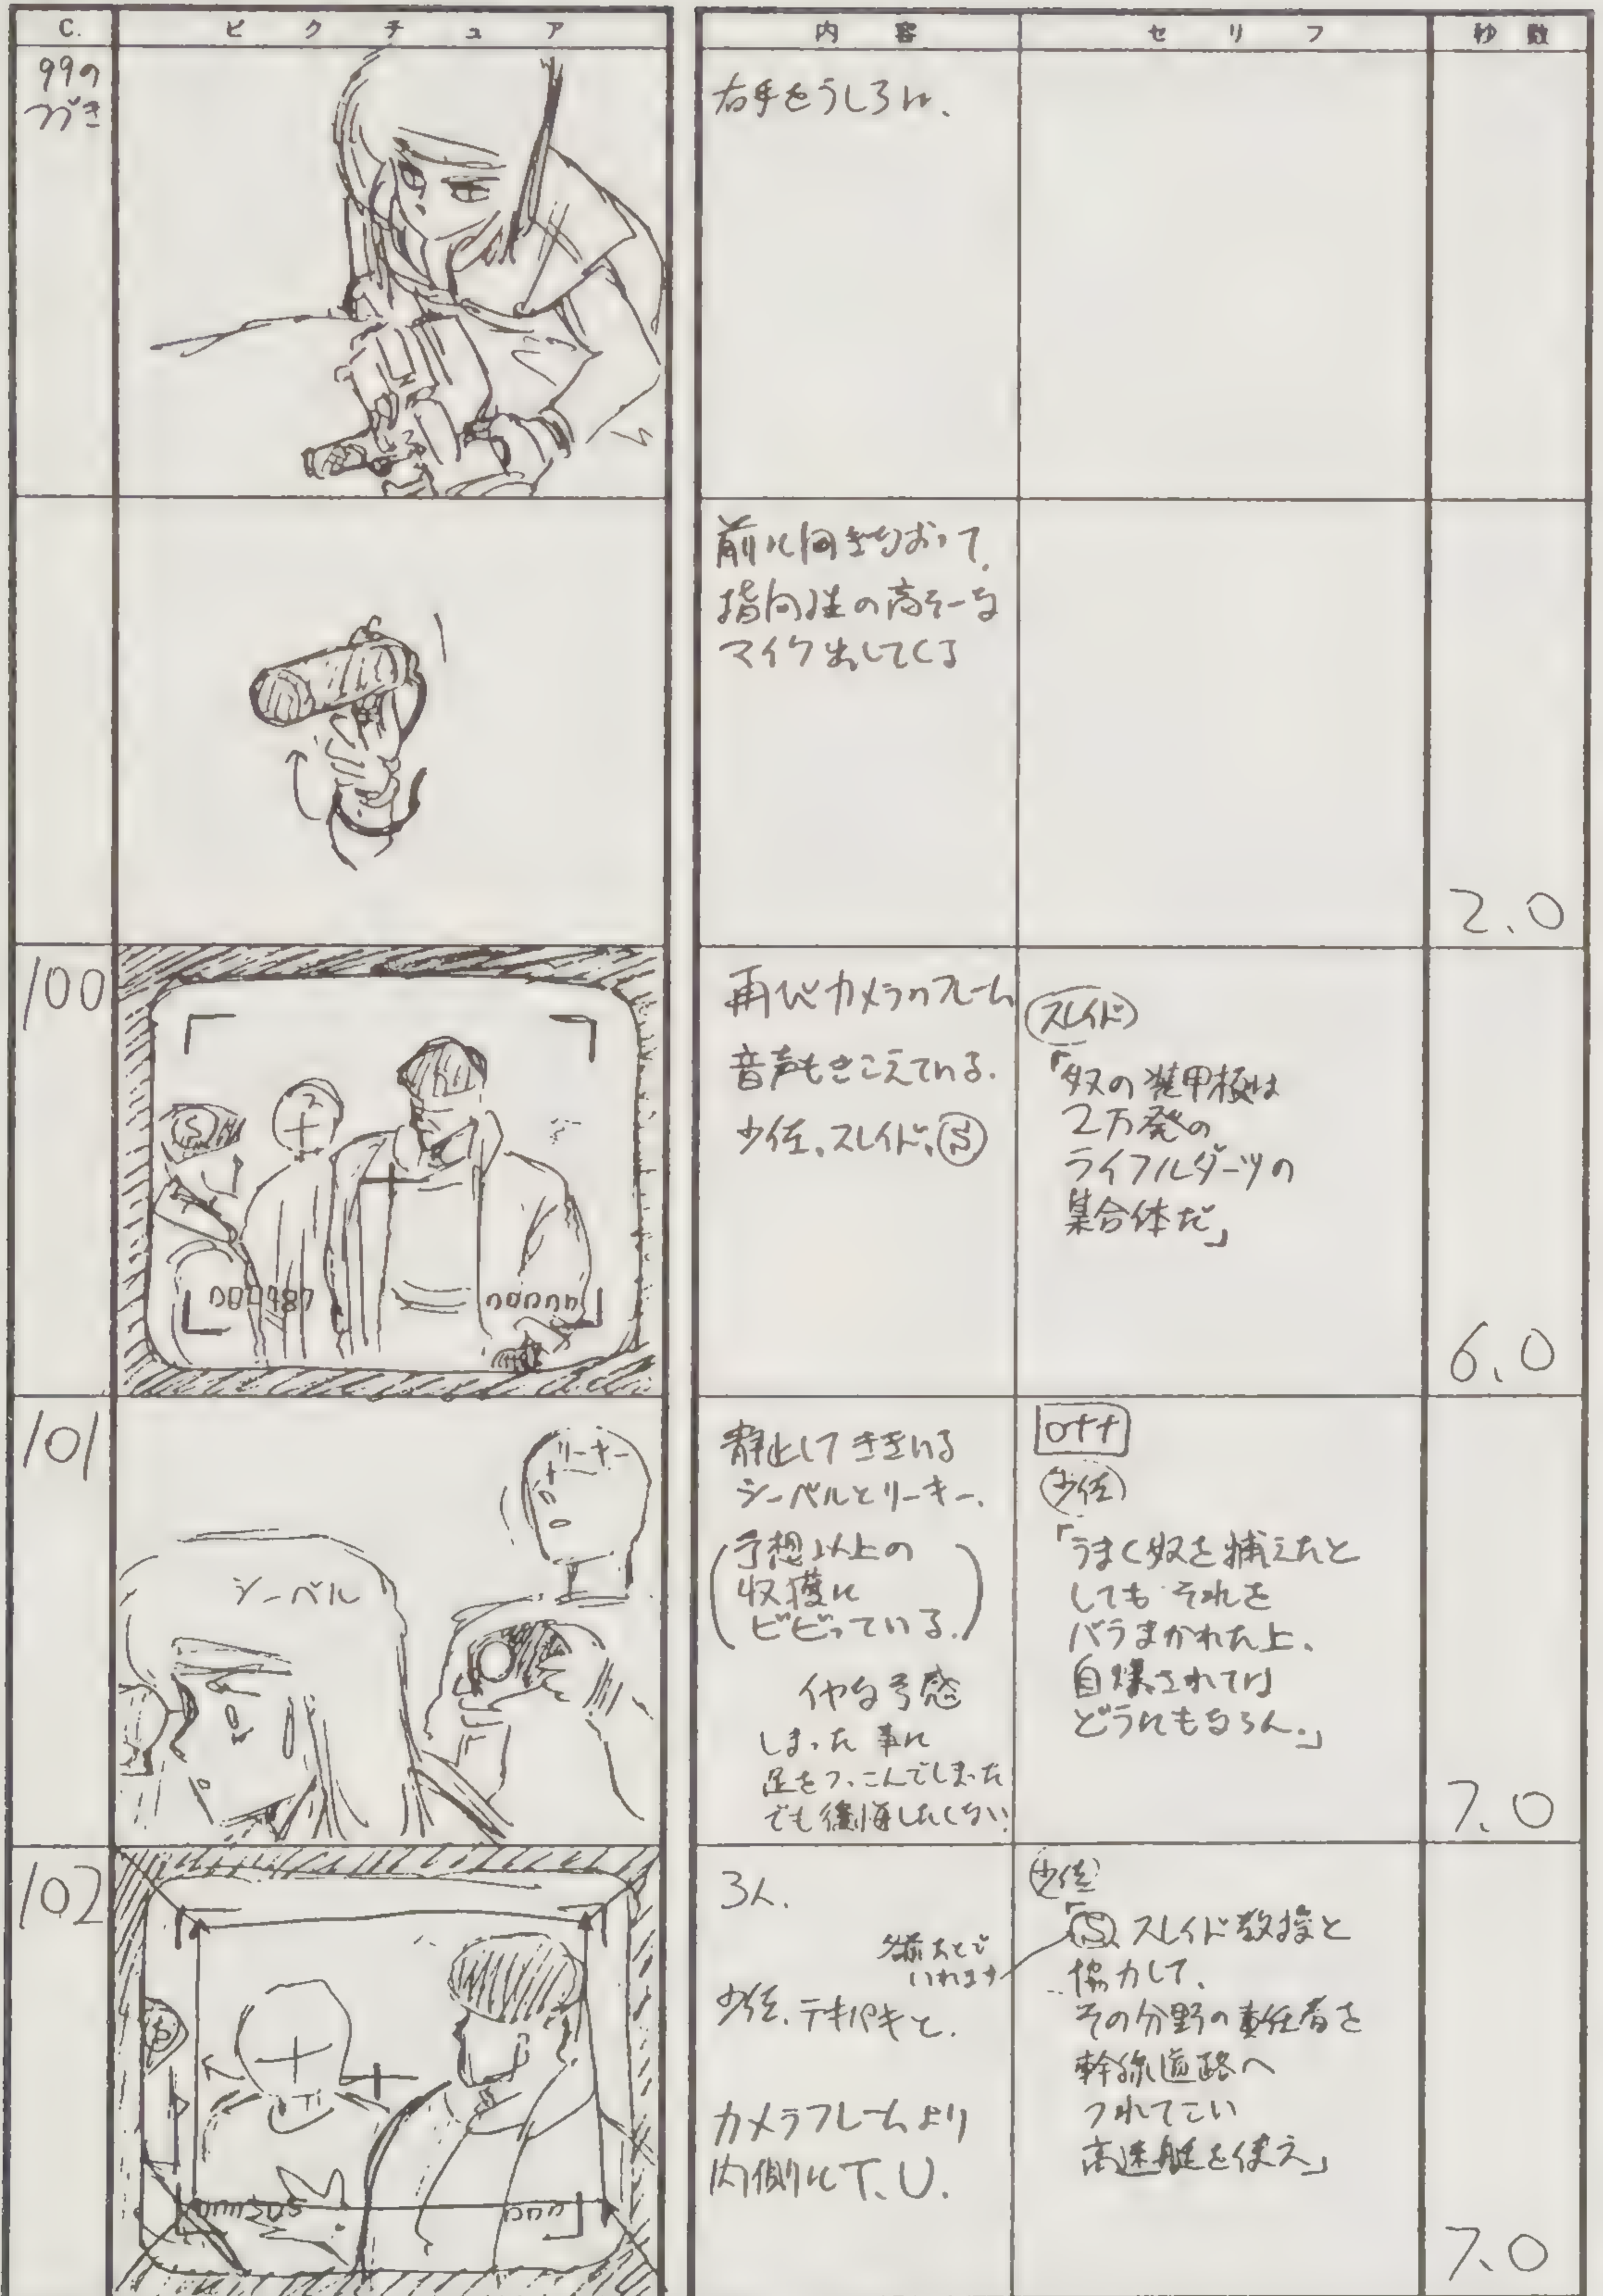 C.
ピクチュア
内容
セリフ
秒数
99の
つづき
右手をうしろに、
前に向きなおって、
指向性の高そーな
マイク出してくる
2.0
100
S
再びカメラのフレーム
音声もきこえている.
少佐、スレイド、S
スレイド
「奴の装甲板は
2万発の
ライフルダーツの
集合体だ」
6.0
101
リーキー
シーベル
静止してきいる
シーベルとリーキー.
(予想以上の
収獲に
ビビっている.)
イヤな予感
しまった 事に
足をつっこんでしまった
でも後悔したくない.
off
少佐
「うまく奴を捕えたと
してもそれを
バラまかれた上、
自爆されては
どうにもならん.」
7.0
102
S
3人.
少佐、テキパキと.
カメラフレームより
内側にT.U.
名前あとで
いれます
少佐
「S スレイド教授と
協力して、
その分野の責任者を
幹線道路へ
つれてこい
高速艇を使え」
7.0